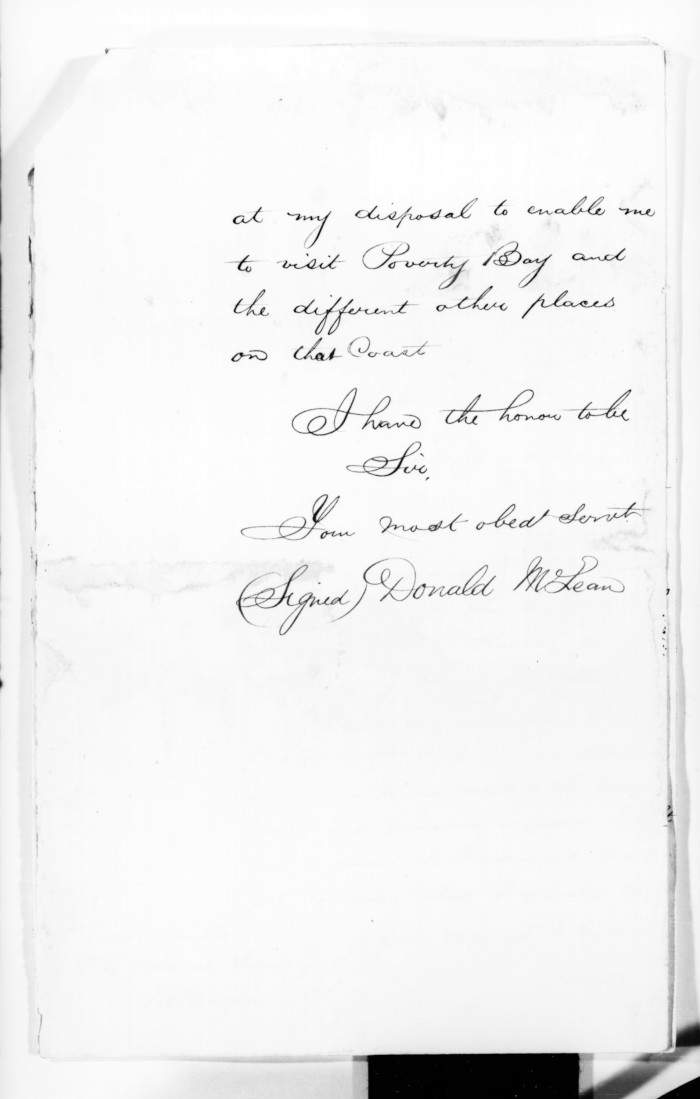 at my disposal to enable me
to visit Poverty Bay and
the different other places
on that Coast
I have the honour to be
Sir,
Your most obedt servt
(Signed) Donald McLean